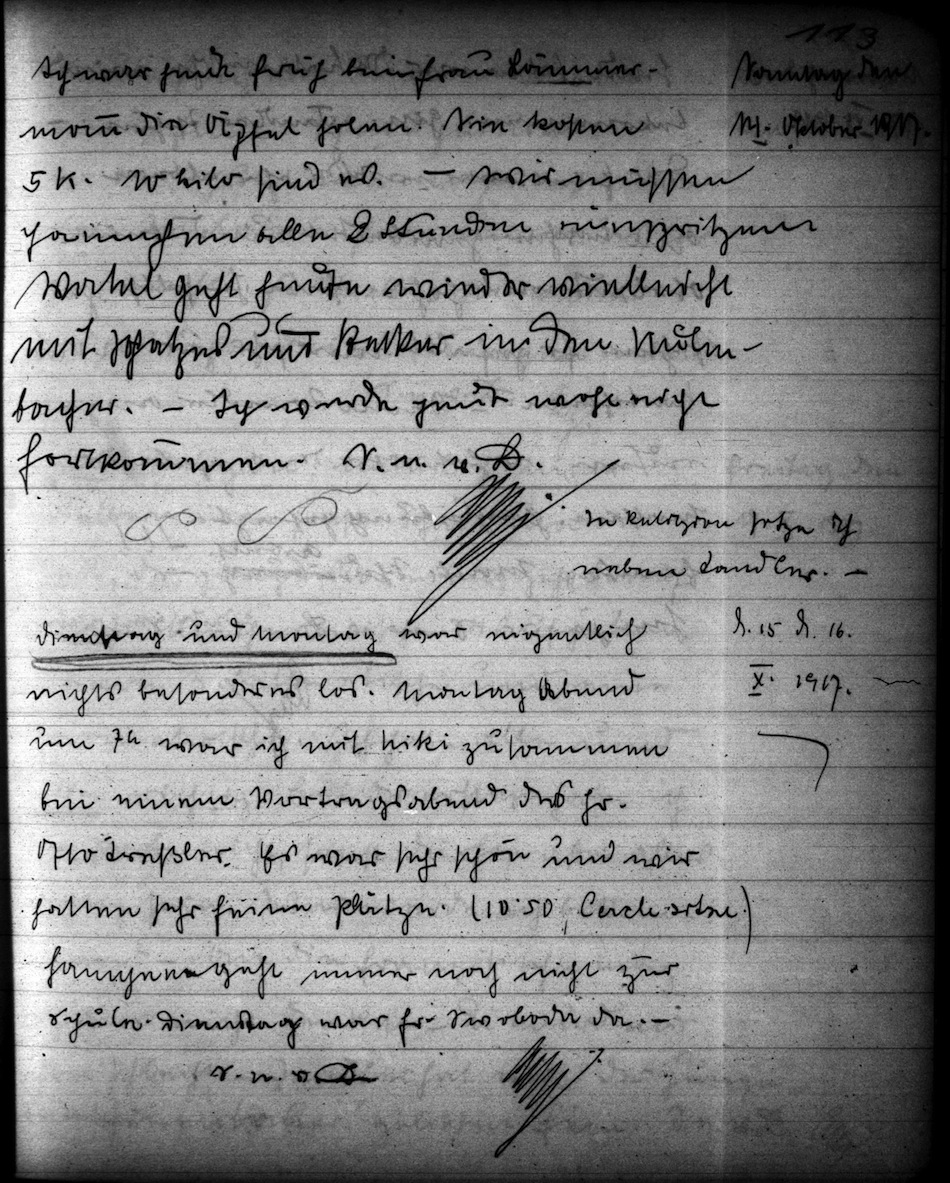 113
Ich war heute früh bei Frau Lämmer-
mann die Äpfel holen. Sie kosten
5 K. 10 Kilo sind es. — Wir müssen
alle 2 Stunden einspritzen
Vatel geht heute wieder vielleicht
mit und in den Kulm-
bacher. — Ich werde heut wohl nicht
fortkommen. S. n. v. D.
Sonntag den
14. Oktober 1917.
In Religion sitze ich
neben Landler. —
Dienstag und Montag war eigentlich
nichts besonderes los. Montag Abend
um 7h war ich mit Niki zusammen
bei einem Vortragsabend des Hr.
Otto Treßler. Es war sehr schön und wir
hatten sehr feine Plätze. (10·50, Cercle sitze.)
geht immer noch nicht zur
Schule. Dienstag war Fr. Swoboda da. —
S. n. v. D
d. 15 d. 16.
X. 1917.